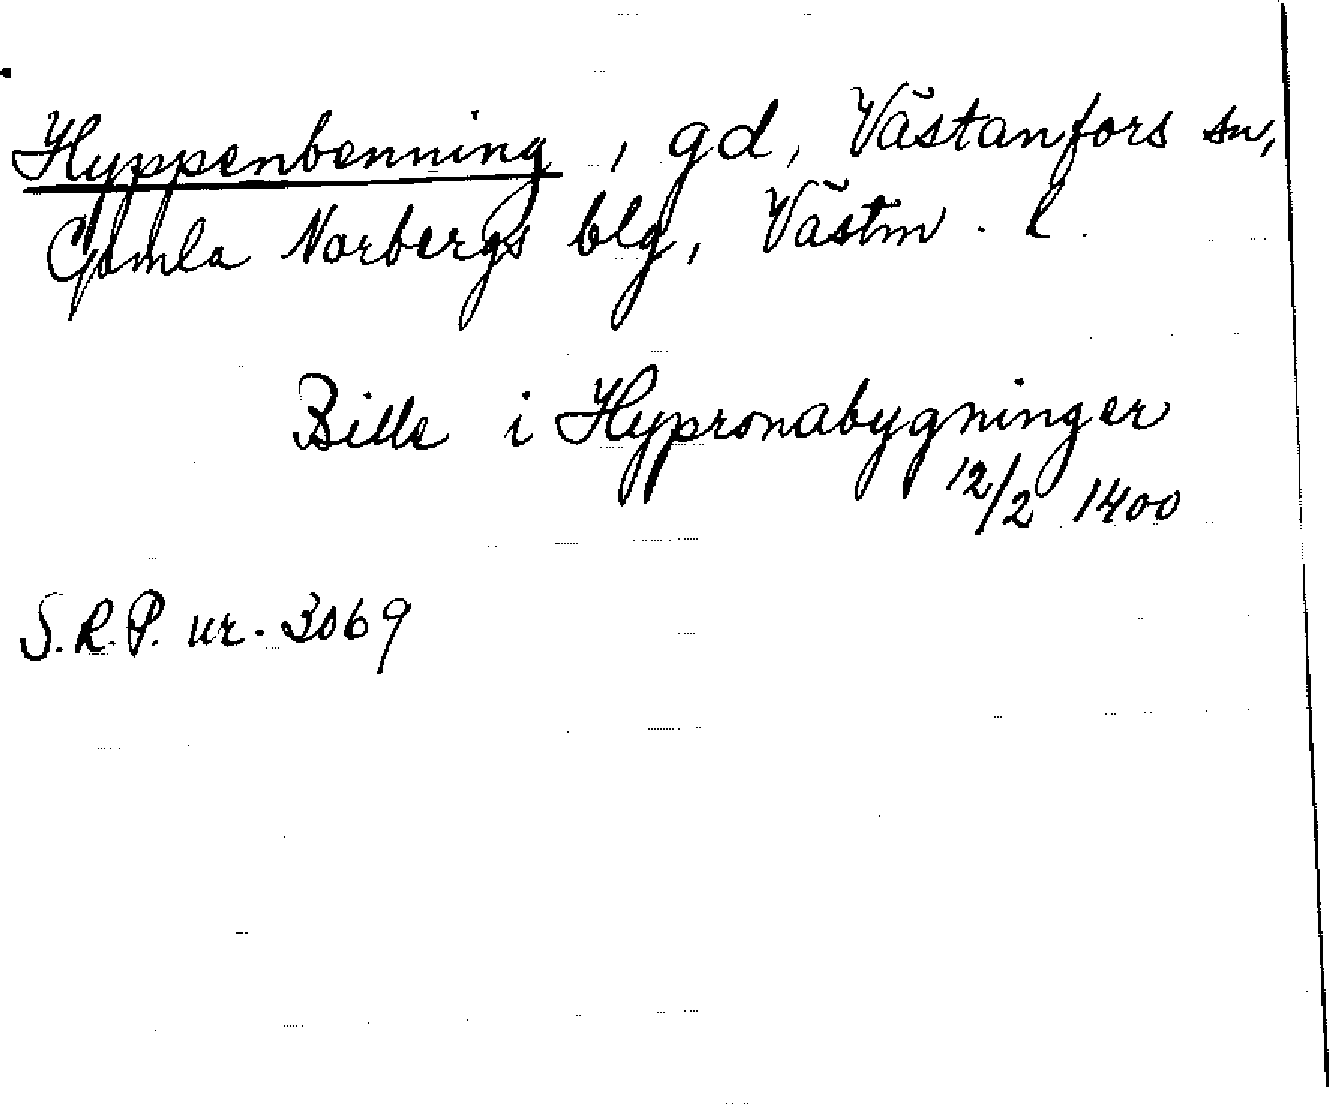 Hyppenbenning, gd, Västanfors sn,
Gamla Norbergs blg, Västm. l.
Bille i Hypronabygninger
12/2 1400
S.R.P. nr. 3069